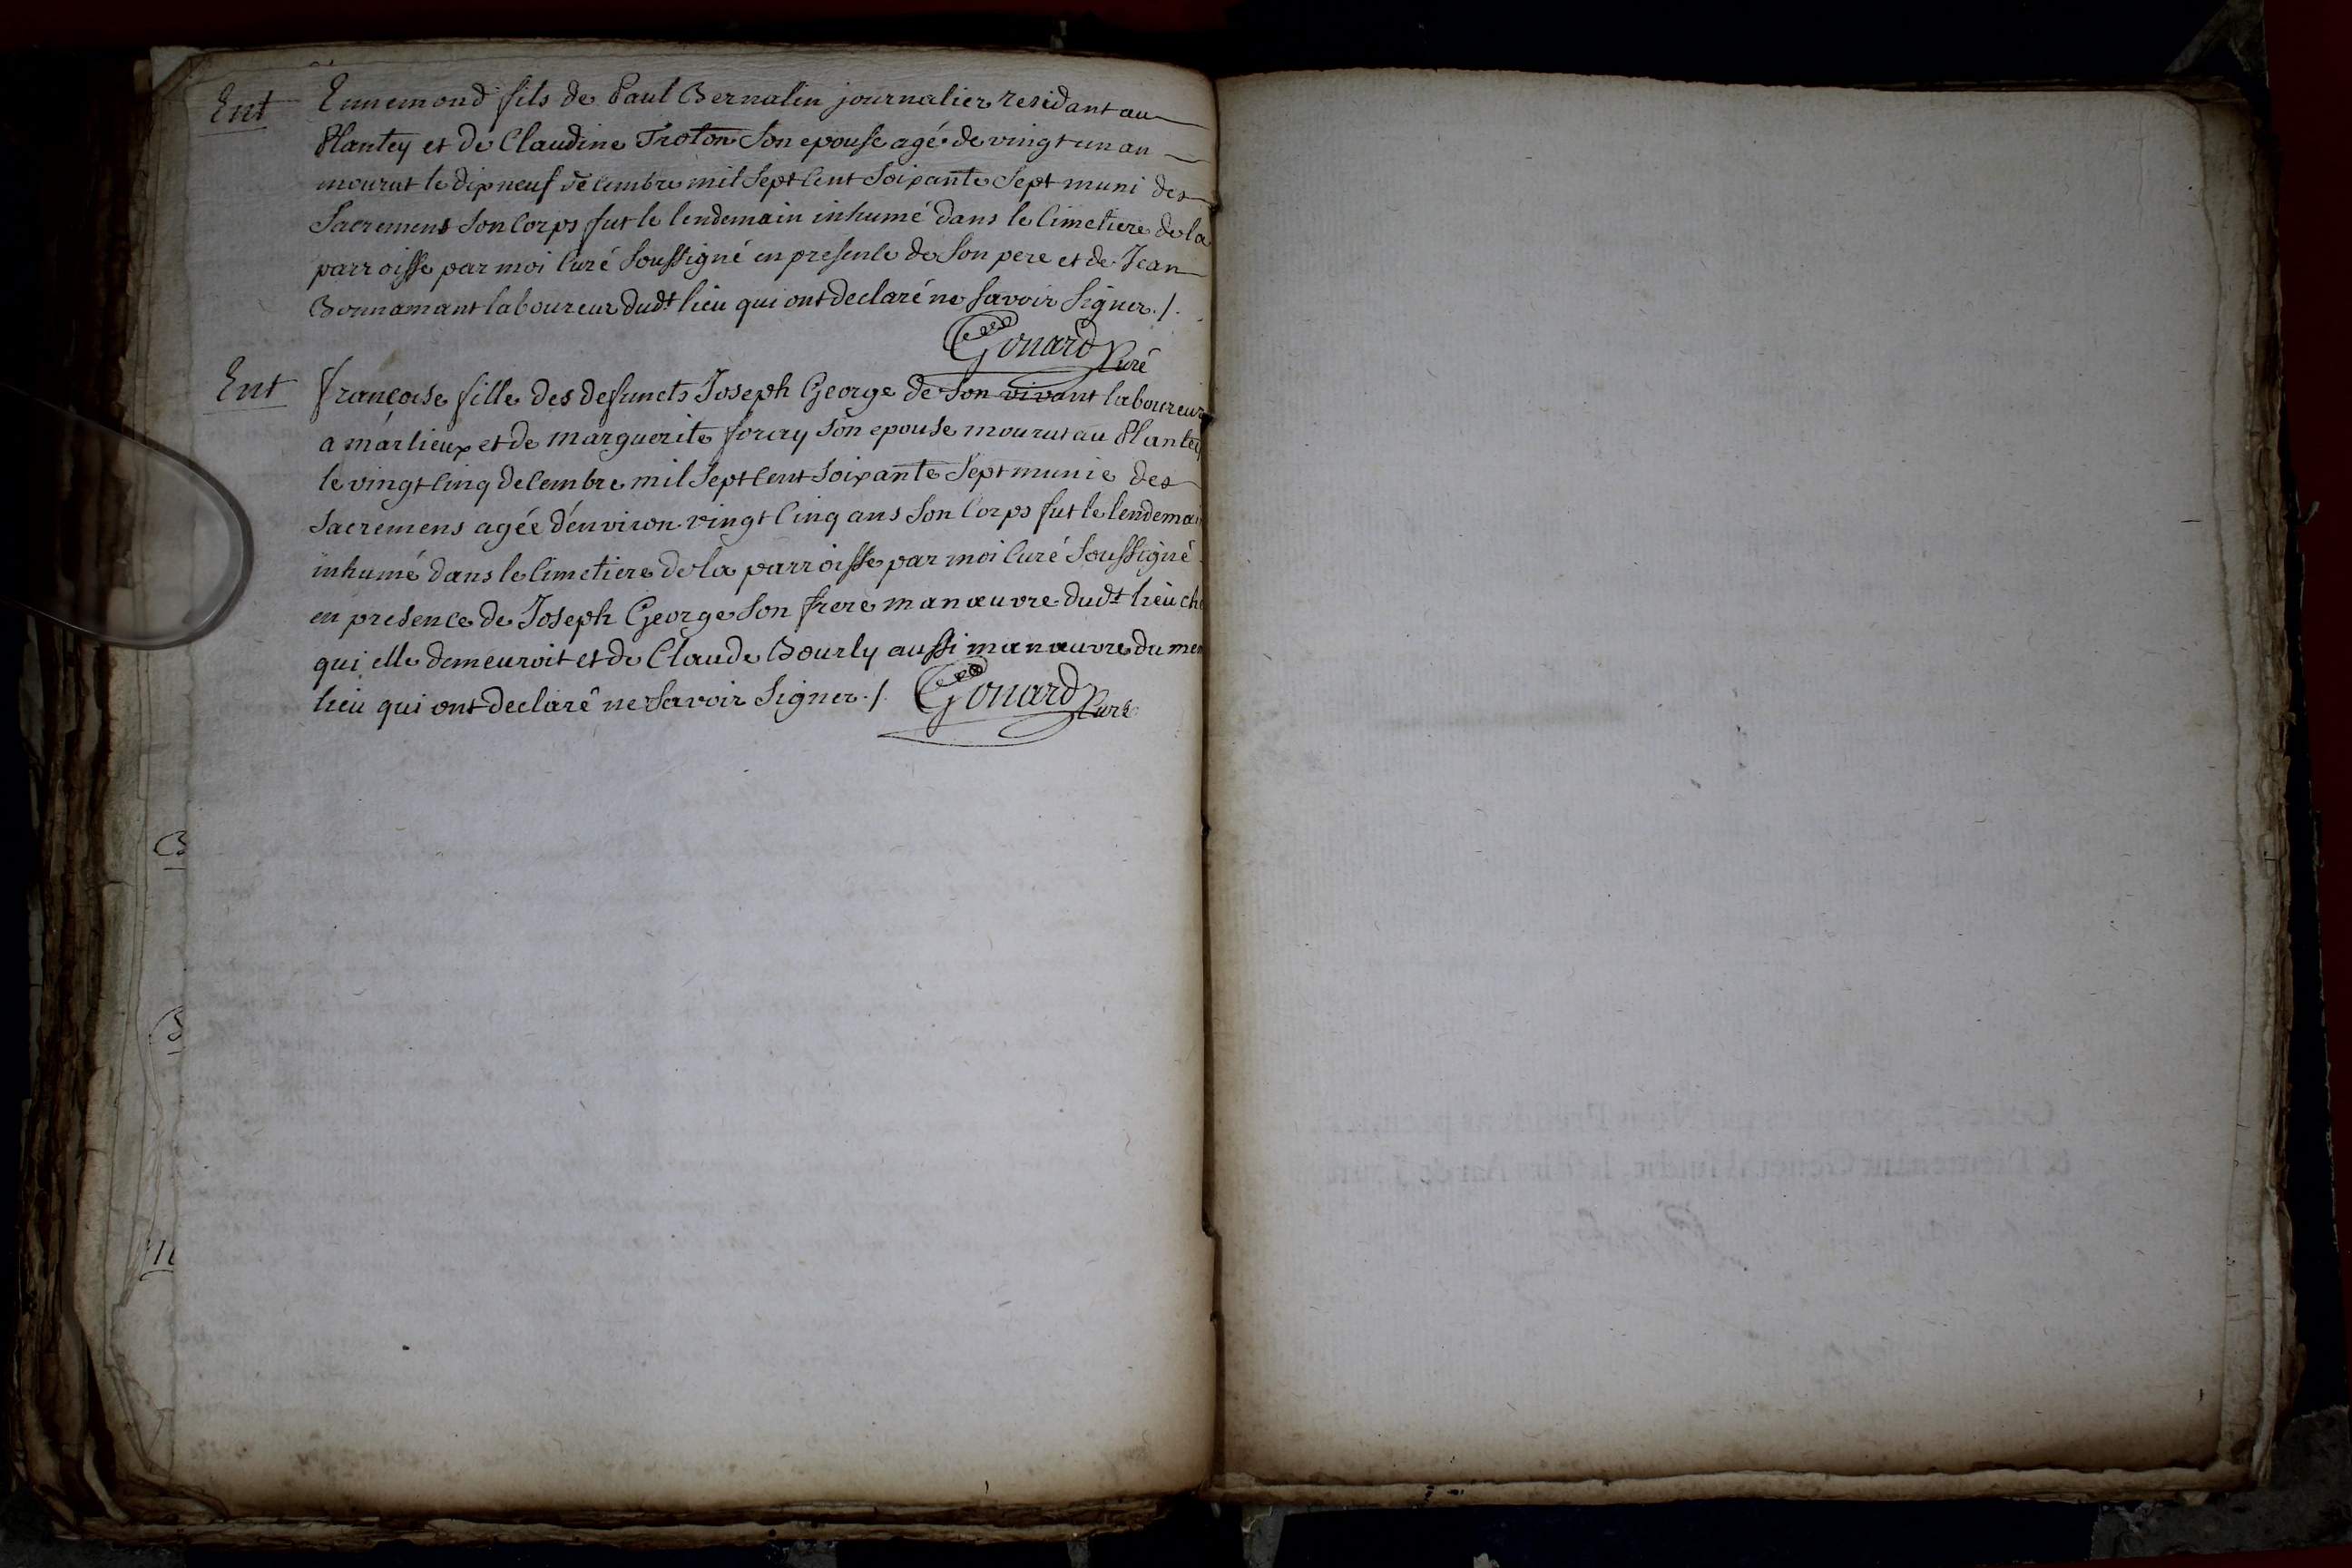 Ent Ennemond fils de Paul Bernalin journalier residant au
Plantey et de Claudine Troton son epouse agé de vingt un an
mourut le dix neuf decembre mil sept cent soixante sept muni des
sacremens son corps fut le lendemain inhumé dans le cimetiere de la
parroisse par moi curé soussigné en presence de son pere et de Jean
Bonnamant laboureur dudt lieu qui ont declaré ne savoir signer ./.
Gonard Curé
Ent françoise fille des defuncts Joseph George de son vivant laboureur
a marlieux et de marguerite foray son epouse mourut au Plantey
le vingt cinq decembre mil sept cent soixante sept munie des
sacremens agée d'environ vingt cinq ans son corps fut le lendemai
inhumé dans le cimetiere de la parroisse par moi curé soussigné
en presence de Joseph George son frere manœuvre dudt lieu ch
qui elle demeuroit et de Claude Bourly aussi manœuvre du mem
lieu qui ont declaré ne savoir signer ./. Gonard Curé
B
B